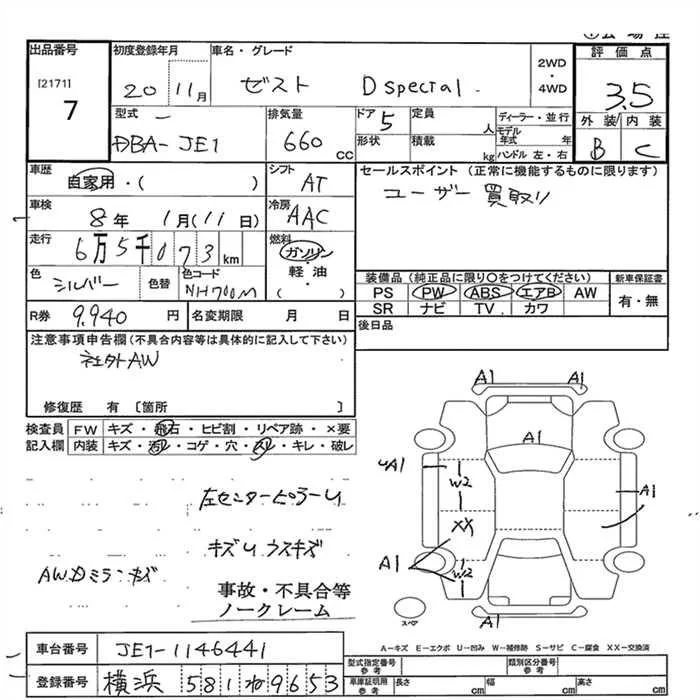 出品番号
[2171]
7
初度登録年月
20 11月
車名・グレード
ゼスト D special
2WD
・
4WD
評価点
3.5
外装 内装
B C
型式
DBA-JE1
排気量
660 cc
ドア
5
形状
定員
人
積載
kg
ディーラー・並行
モデル年式 年
ハンドル 左・右
車歴
自家用・( )
シフト
AT
セールスポイント (正常に機能するものに限ります)
ユーザー買取り
車検
8年 1月(11日)
冷房
AAC
走行
6万5千073km
燃料
ガソリン
軽油
( )
色
シルバー
色替
色コード
NH700M
装備品 (純正品に限り○をつけてください)
PS PW ABS エアB AW
SR ナビ TV カワ
新車保証書
有・無
R券 9,940 円
名変期限 月 日
後日品
注意事項申告欄(不具合内容等は具体的に記入して下さい)
社外AW
修復歴 有 〔箇所 〕
検査員記入欄
FW キズ・飛石・ヒビ割・リペア跡・×要
内装 キズ・汚レ・コゲ・穴・スレ・キレ・破レ
左センターピラーU
キズU ウスキズ
AWDミラーキズ
事故・不具合等
ノークレーム
A1 A1
A1
A1 W2
A1
XX
A1 W2
A1
スペア
A-キズ E-エクボ U-凹み W-補修跡 S-サビ C-腐食 XX-交換済
車台番号 JE1-1146441
登録番号 横浜 581 ね 9653
型式指定番号
参考
類別区分番号
車庫証明用
参考
長さ cm 幅 cm 高さ cm